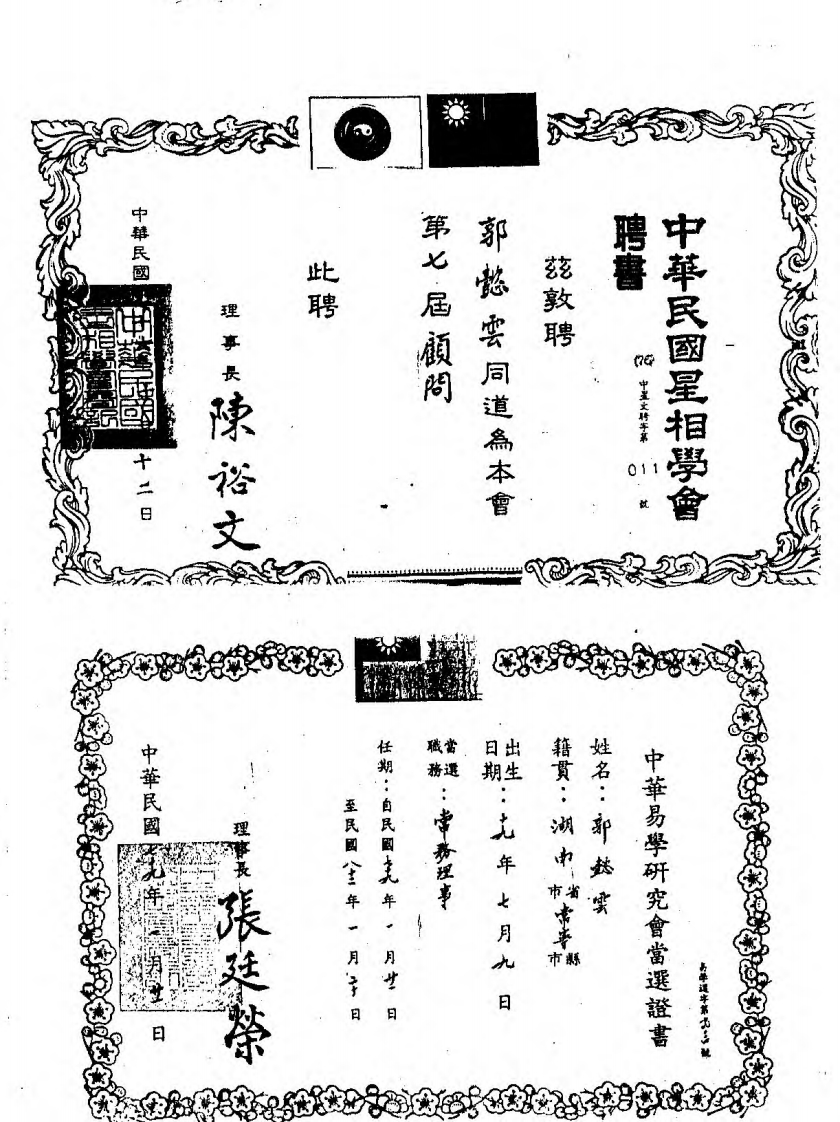 中華民國星相學會
聘書
中星文聘字第 011 號
茲敦聘
郭懿雲同道為本會
第七屆顧問
此聘
理事長 陳裕文
中華民國
十二日
中華易學研究會當選證書
姓名：郭懿雲
籍貫：湖南省市常寧縣市
出生日期：十九年七月九日
當選職務：常務理事
任期：自民國七九年一月廿一日
至民國八十三年一月二十日
理事長 張廷榮
中華民國七九年一月廿一日